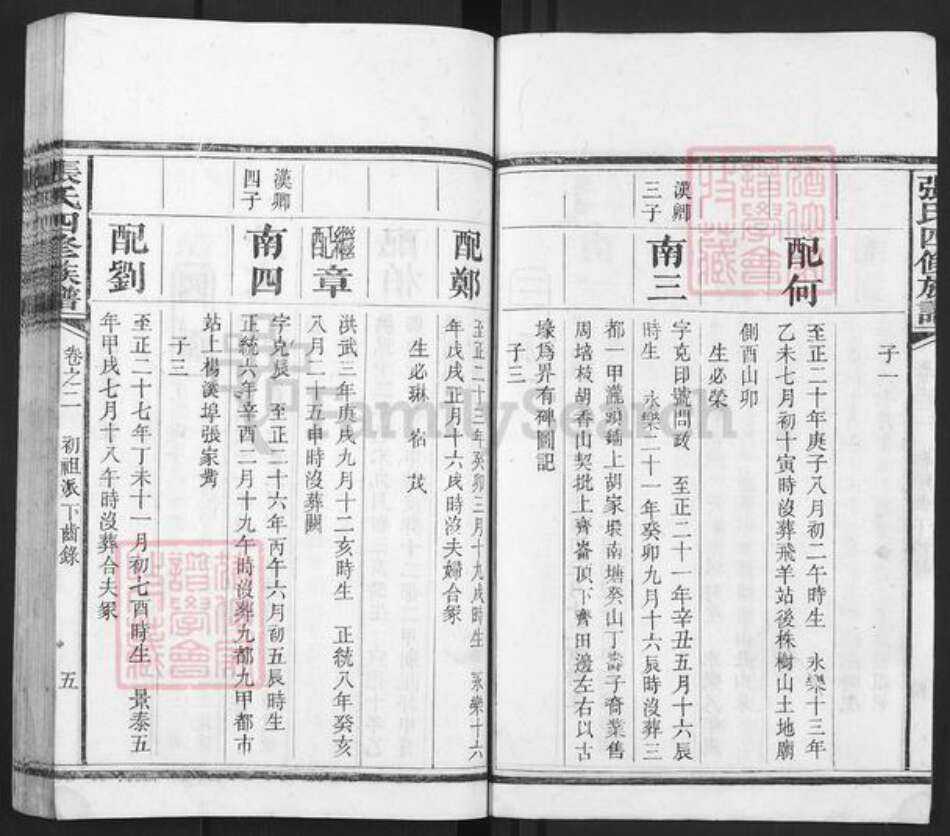 張氏四修族譜
子一
配何
至正二十年庚子八月初二午時生 永樂十三年
乙未七月初十寅時沒葬飛羊站後株樹山土地廟
側酉山卯
生必榮
漢卿
三子
南三
字克印號問政 至正二十一年辛丑五月十六辰
時生 永樂二十一年癸卯九月十六辰時沒葬三
都一甲瀧頭鋪上胡家塅南塘癸山丁 子裔業舊
周培枝胡香山契批上齊崙頂下齊田邊左右以古
壕為界有碑圖記
子三
配鄭
至正二十三年癸卯三月十九戌時生 永樂十六
年戊戌正月十六戌時沒夫婦合冢
生必琳 茂
繼配章
洪武三年庚戌九月十二亥時生 正統八年癸亥
八月二十五申時沒葬闕
漢卿
四子
南四
字克辰 至正二十六年丙午六月初五辰時生
正統六年辛酉二月十九午時沒葬九都九甲都市
站上楊溪埠張家
子三
配劉
至正二十七年丁未十一月初七酉時生 景泰五
年甲戌七月十八午時沒葬合夫冢
張氏四修族譜 卷之二 初祖派下齒錄 五
譜學會
收藏
譜學會
FamilySearch